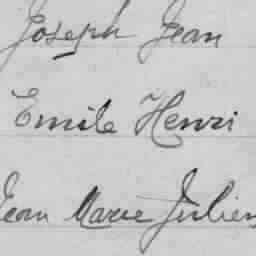 Joseph Jean
Emile Henri
Jean Marie Julien